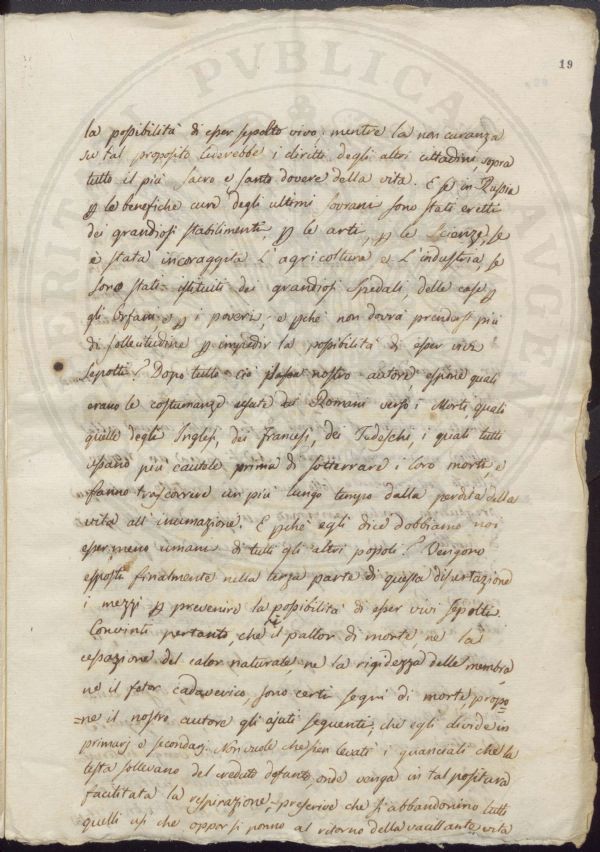 19
la possibilità di esser sepolto vivo: mentre la non curanza
su tal proposito leverebbe i diritti degli altri cittadini, sopra
tutto il più sacro e santo dovere della vita. E se in Russia
p le benefiche cure degli ultimi sovrani sono stati eretti
dei grandiosi stabilimenti, p le arti, p le Scienze, se
è stata incoraggita l'agricoltura e l'industria, se
sono stati istituiti dei grandiosi Spedali, delle case p
gli Orfani e p i poveri, e pchè non dovrà prendersi più
di sollecitudine p impedir la possibilità di esser vivi
sepolti? Dopo tutto ciò passa nostro autore, espone quali
erano le costumanze usate dai Romani verso i Morti, quali
quelle degli Inglesi, dei Francesi, dei Tedeschi, i quali tutti
usano più cautele prima di sotterrare i loro morti, e
fanno trascorrere un più lungo tempo dalla perdita della
vita all'inumazione. E pchè egli dice dobbiamo noi
esser meno umani di tutti gli altri popoli? Vengono
esposti finalmente nella terza parte di questa dissertazione
i mezzi p prevenire la possibilità di esser vivi sepolti.
Convinti pertanto, che il pallor di morte, ne la
cessazione del calor naturale, ne la rigidezza delle membra
ne il fetor cadaverico, sono certi segni di morte, propo=
=ne il nostro autore gli ajuti seguenti, che egli divide in
primarj e secondarj. Non vuole che sien levati i guanciali che la
testa sollevano del creduto defunto, onde venga in tal positura
facilitata la respirazione, prescrive che si abbandonino tutti
quelli usi che oppor si ponno al ritorno della vacillante vita